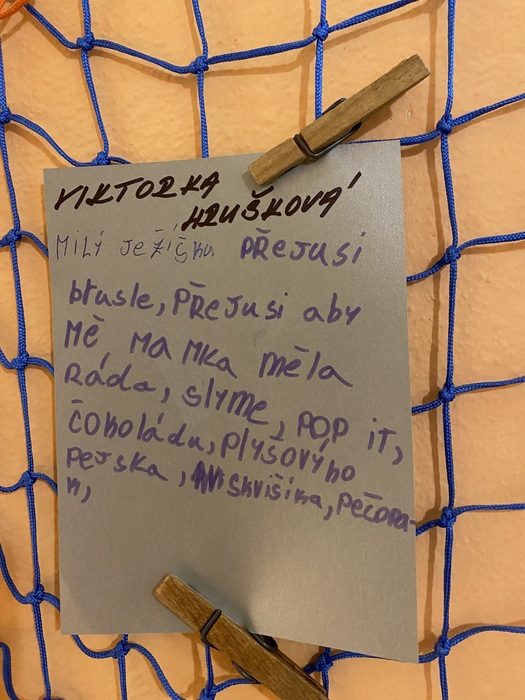 VIKTORKA
HRUŠKOVÁ
MILÝ JEŽÍŠKU PŘEJUSI
bRusle, PŘEJUSI aby
MĚ, MAMKA měla
RádA, slyme, POP iT,
ČOKOládu, Plyšového
PeJska,